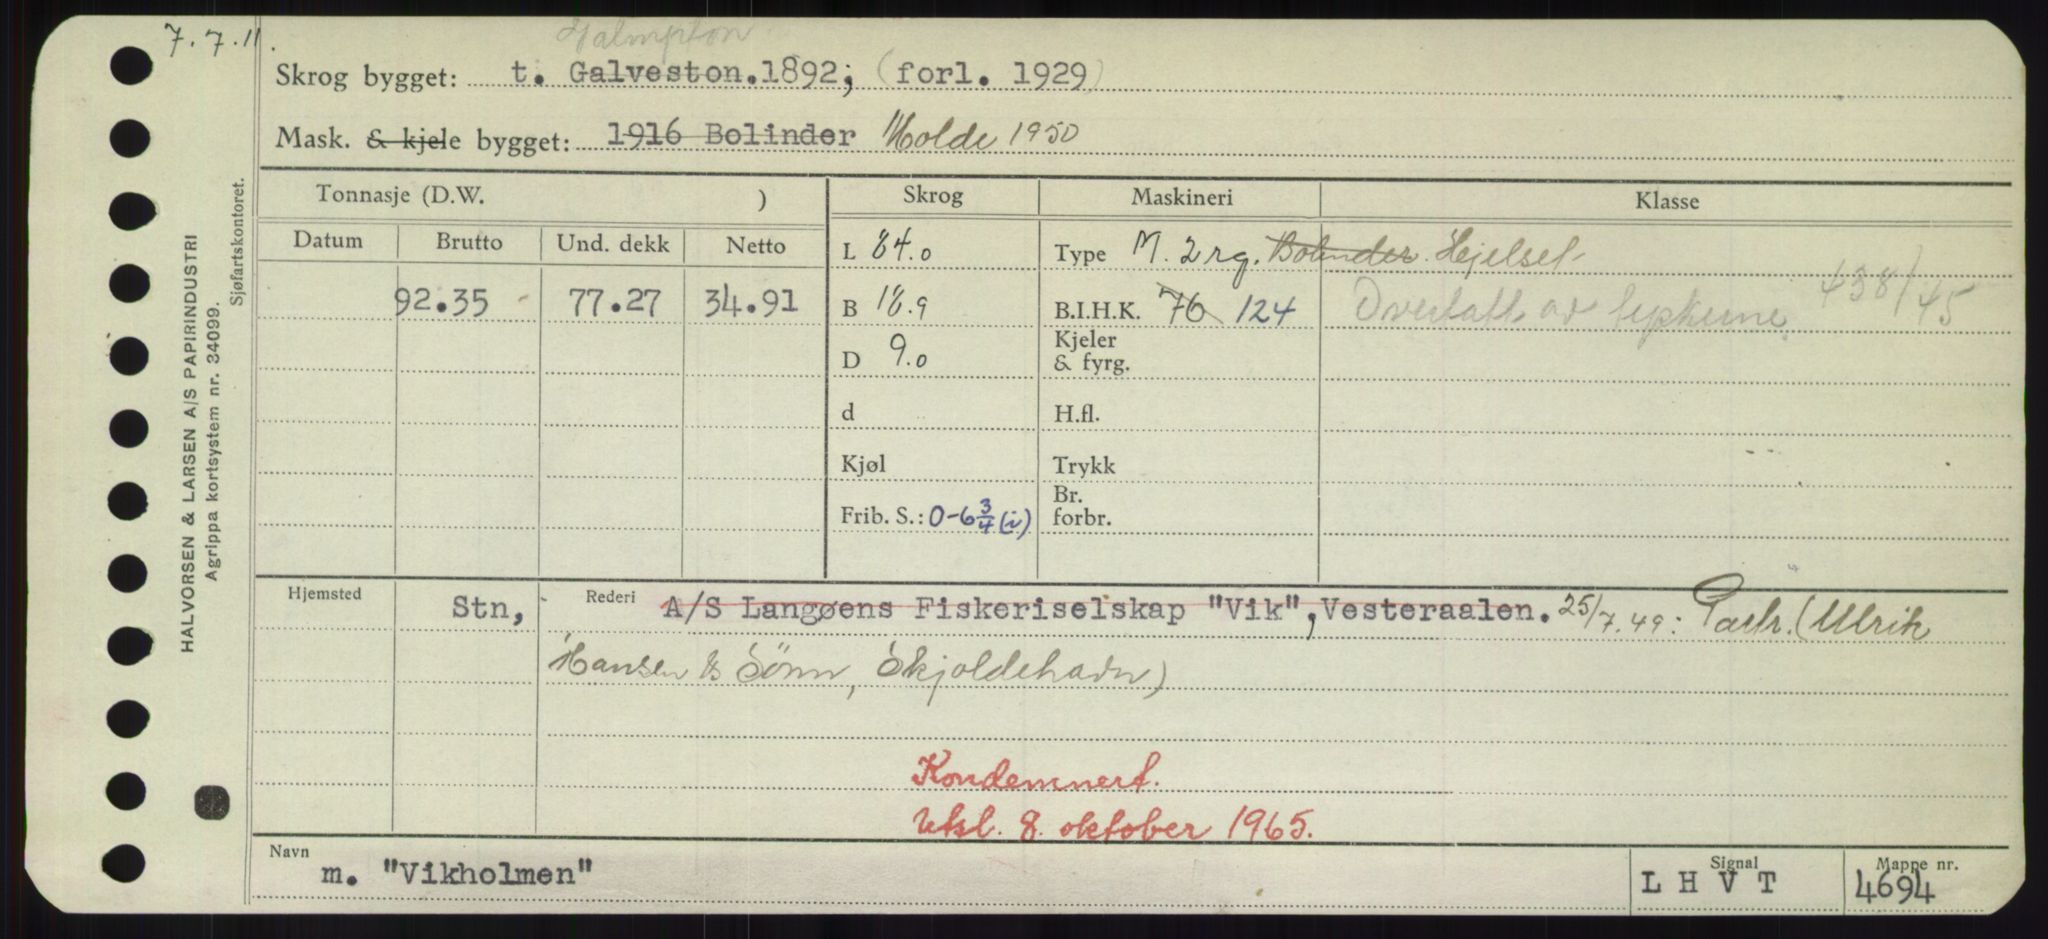 7.7.11.
Galmpton
Skrog bygget: t. Galveston.1892; (forl. 1929)
Mask. & kjele bygget: 1916 Bolinder Molde 1950
Tonnasje (D.W. ) Skrog Maskineri Klasse
Datum Brutto Und. dekk Netto L 84.0 Type M. 2 rg. Bolinder. Hjelset
92.35 77.27 34.91 B 18.9 B.I.H.K. 76 124 Overtatt av tyskerne 438/45
D 9.0 Kjeler & fyrg.
d H.fl.
Kjøl Trykk
Frib. S.: 0-6 3/4 (i) Br. forbr.
Hjemsted Stn, Rederi A/S Langøens Fiskeriselskap "Vik", Vesteraalen. 25/7.49: Partr. (Ulrik
Hansen & Sönn, Skjoldehavn)
Kondemnert.
Utsl. 8. oktober 1965.
Navn m. "Vikholmen" Signal L H V T Mappe nr. 4694
HALVORSEN & LARSEN A/S PAPIRINDUSTRI
Agrippa kortsystem nr. 34099.
Sjøfartskontoret.